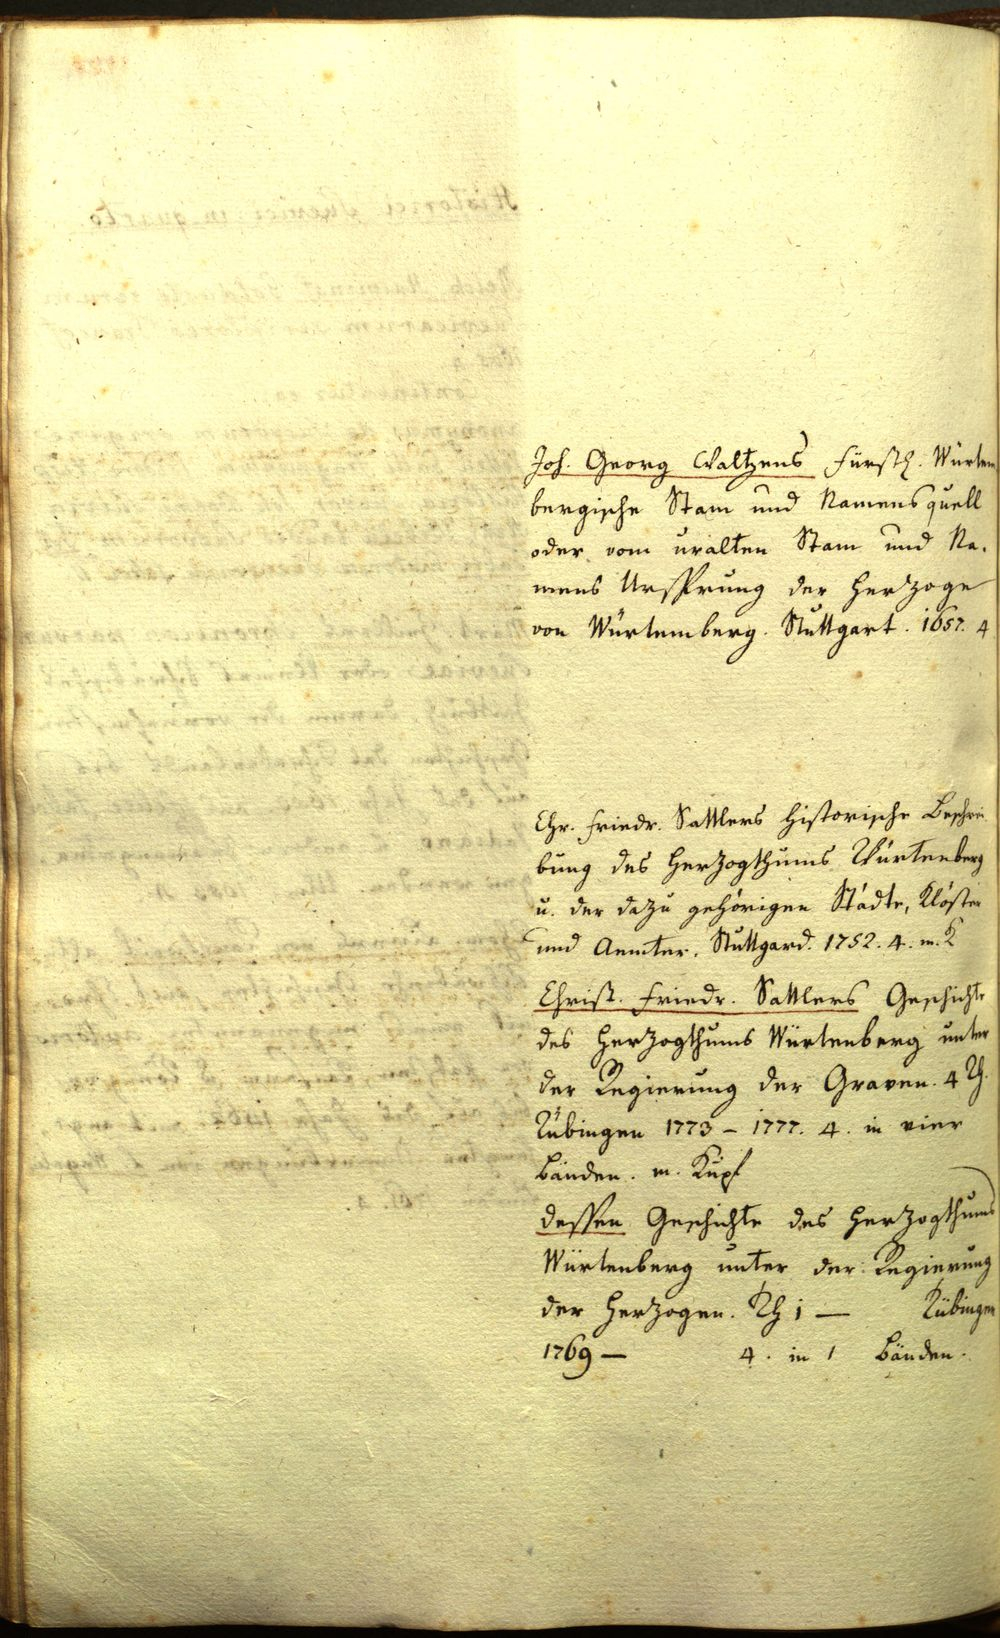 Joh. Georg Waltzens Fürstl. Würtem
bergische Stam und Namensquell
oder vom uralten Stam und Na-
mens Ursprung der Herzoge
von Würtemberg. Stuttgart. 1657. 4
Chr. Friedr. Sattlers Historische Beschrei
bung des Herzogthums Würtenberg
u. der dazu gehörigen Städte, Klöster
und Aemter. Stuttgard. 1752. 4. m. K
Christ. Friedr. Sattlers Geschichte
des Herzogthums Würtenberg unter
der Regierung der Graven. 4 Th.
Tübingen 1773 – 1777. 4. in vier
Bänden. m. Kupf
dessen Geschichte des Herzogthums
Würtenberg unter der Regierung
der Herzogen. Th 1 — Tübingen
1769 — 4. in 1 Bänden.